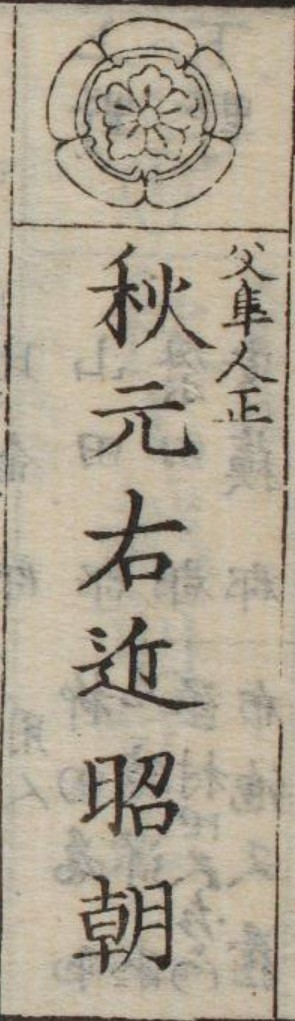 父隼人正
秋元右近昭朝